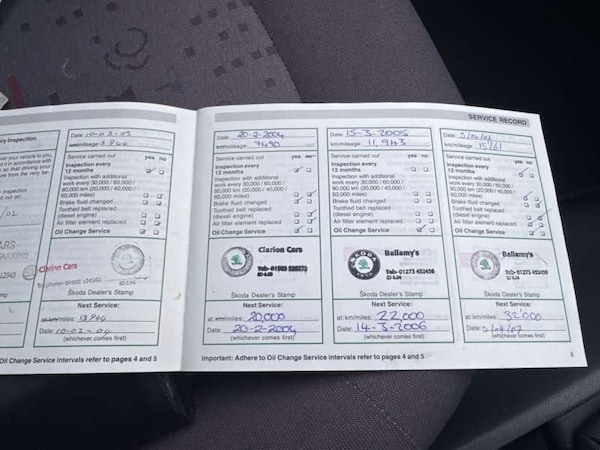 SERVICE RECORD
ry Inspection
/02
ARS
Date: 10-03-03
km/mileage: 3966
Service carried out yes no
Inspection every
12 months
Inspection with additional
work every 30,000 / 60,000 /
90,000 km (20,000 / 40,000 /
60,000 miles)
Brake fluid changed
Toothed belt replaced
(diesel engine)
Air filter element replaced
Oil Change Service
Clarion Cars
Škoda Dealer's Stamp
Next Service:
at: km/miles:
Date:
(whichever comes first)
Oil Change Service intervals refer to pages 4 and 5
Date: 20-2-2004
km/mileage: 7430
Service carried out yes no
Inspection every
12 months
Inspection with additional
work every 30,000 / 60,000 /
90,000 km (20,000 / 40,000 /
60,000 miles)
Brake fluid changed
Toothed belt replaced
(diesel engine)
Air filter element replaced
Oil Change Service
Clarion Cars
Škoda Dealer's Stamp
Next Service:
at: km/miles: 20,000
Date: 20-2-2004
(whichever comes first)
Date: 15-3-2005
km/mileage: 11,943
Service carried out yes no
Inspection every
12 months
Inspection with additional
work every 30,000 / 60,000 /
90,000 km (20,000 / 40,000 /
60,000 miles)
Brake fluid changed
Toothed belt replaced
(diesel engine)
Air filter element replaced
Oil Change Service
SKODA
Ballamy's
Tel: 01273 452456
Škoda Dealer's Stamp
Next Service:
at: km/miles: 22,000
Date: 14-3-2006
(whichever comes first)
Date:
km/mileage: 15161
Service carried out yes no
Inspection every
12 months
Inspection with additional
work every 30,000 / 60,000 /
90,000 km (20,000 / 40,000 /
60,000 miles)
Brake fluid changed
Toothed belt replaced
(diesel engine)
Air filter element replaced
Oil Change Service
Ballamy's
Tel: 01273 452456
Škoda Dealer's Stamp
Next Service:
at: km/miles: 32'000
Date: 5/04/07
(whichever comes first)
Important: Adhere to Oil Change Service intervals refer to pages 4 and 5
9